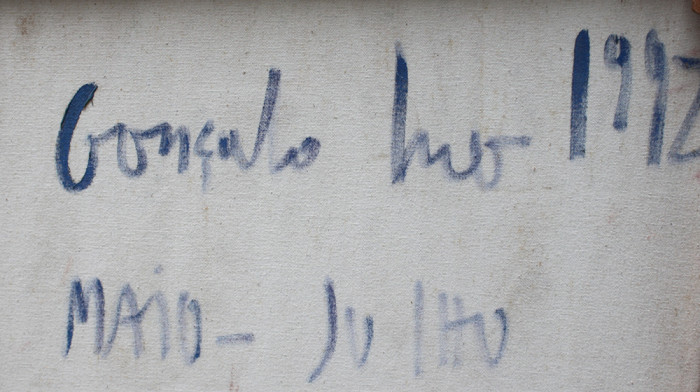 Gonçalo Ivo 1992
MAIO - JULHO